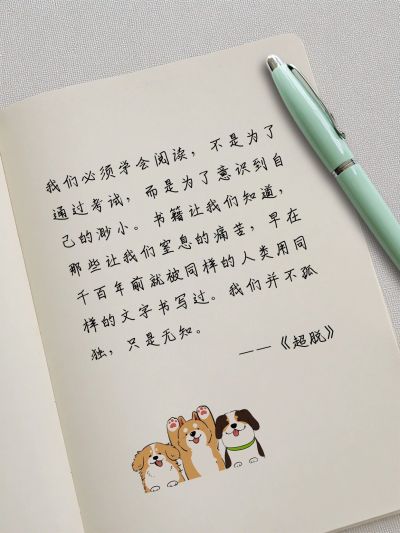 我们必须学会阅读，不是为了
通过考试，而是为了意识到自
己的渺小。书籍让我们知道，
那些让我们窒息的痛苦，早在
千百年前就被同样的人类用同
样的文字书写过。我们并不孤
独，只是无知。
——《超脱》